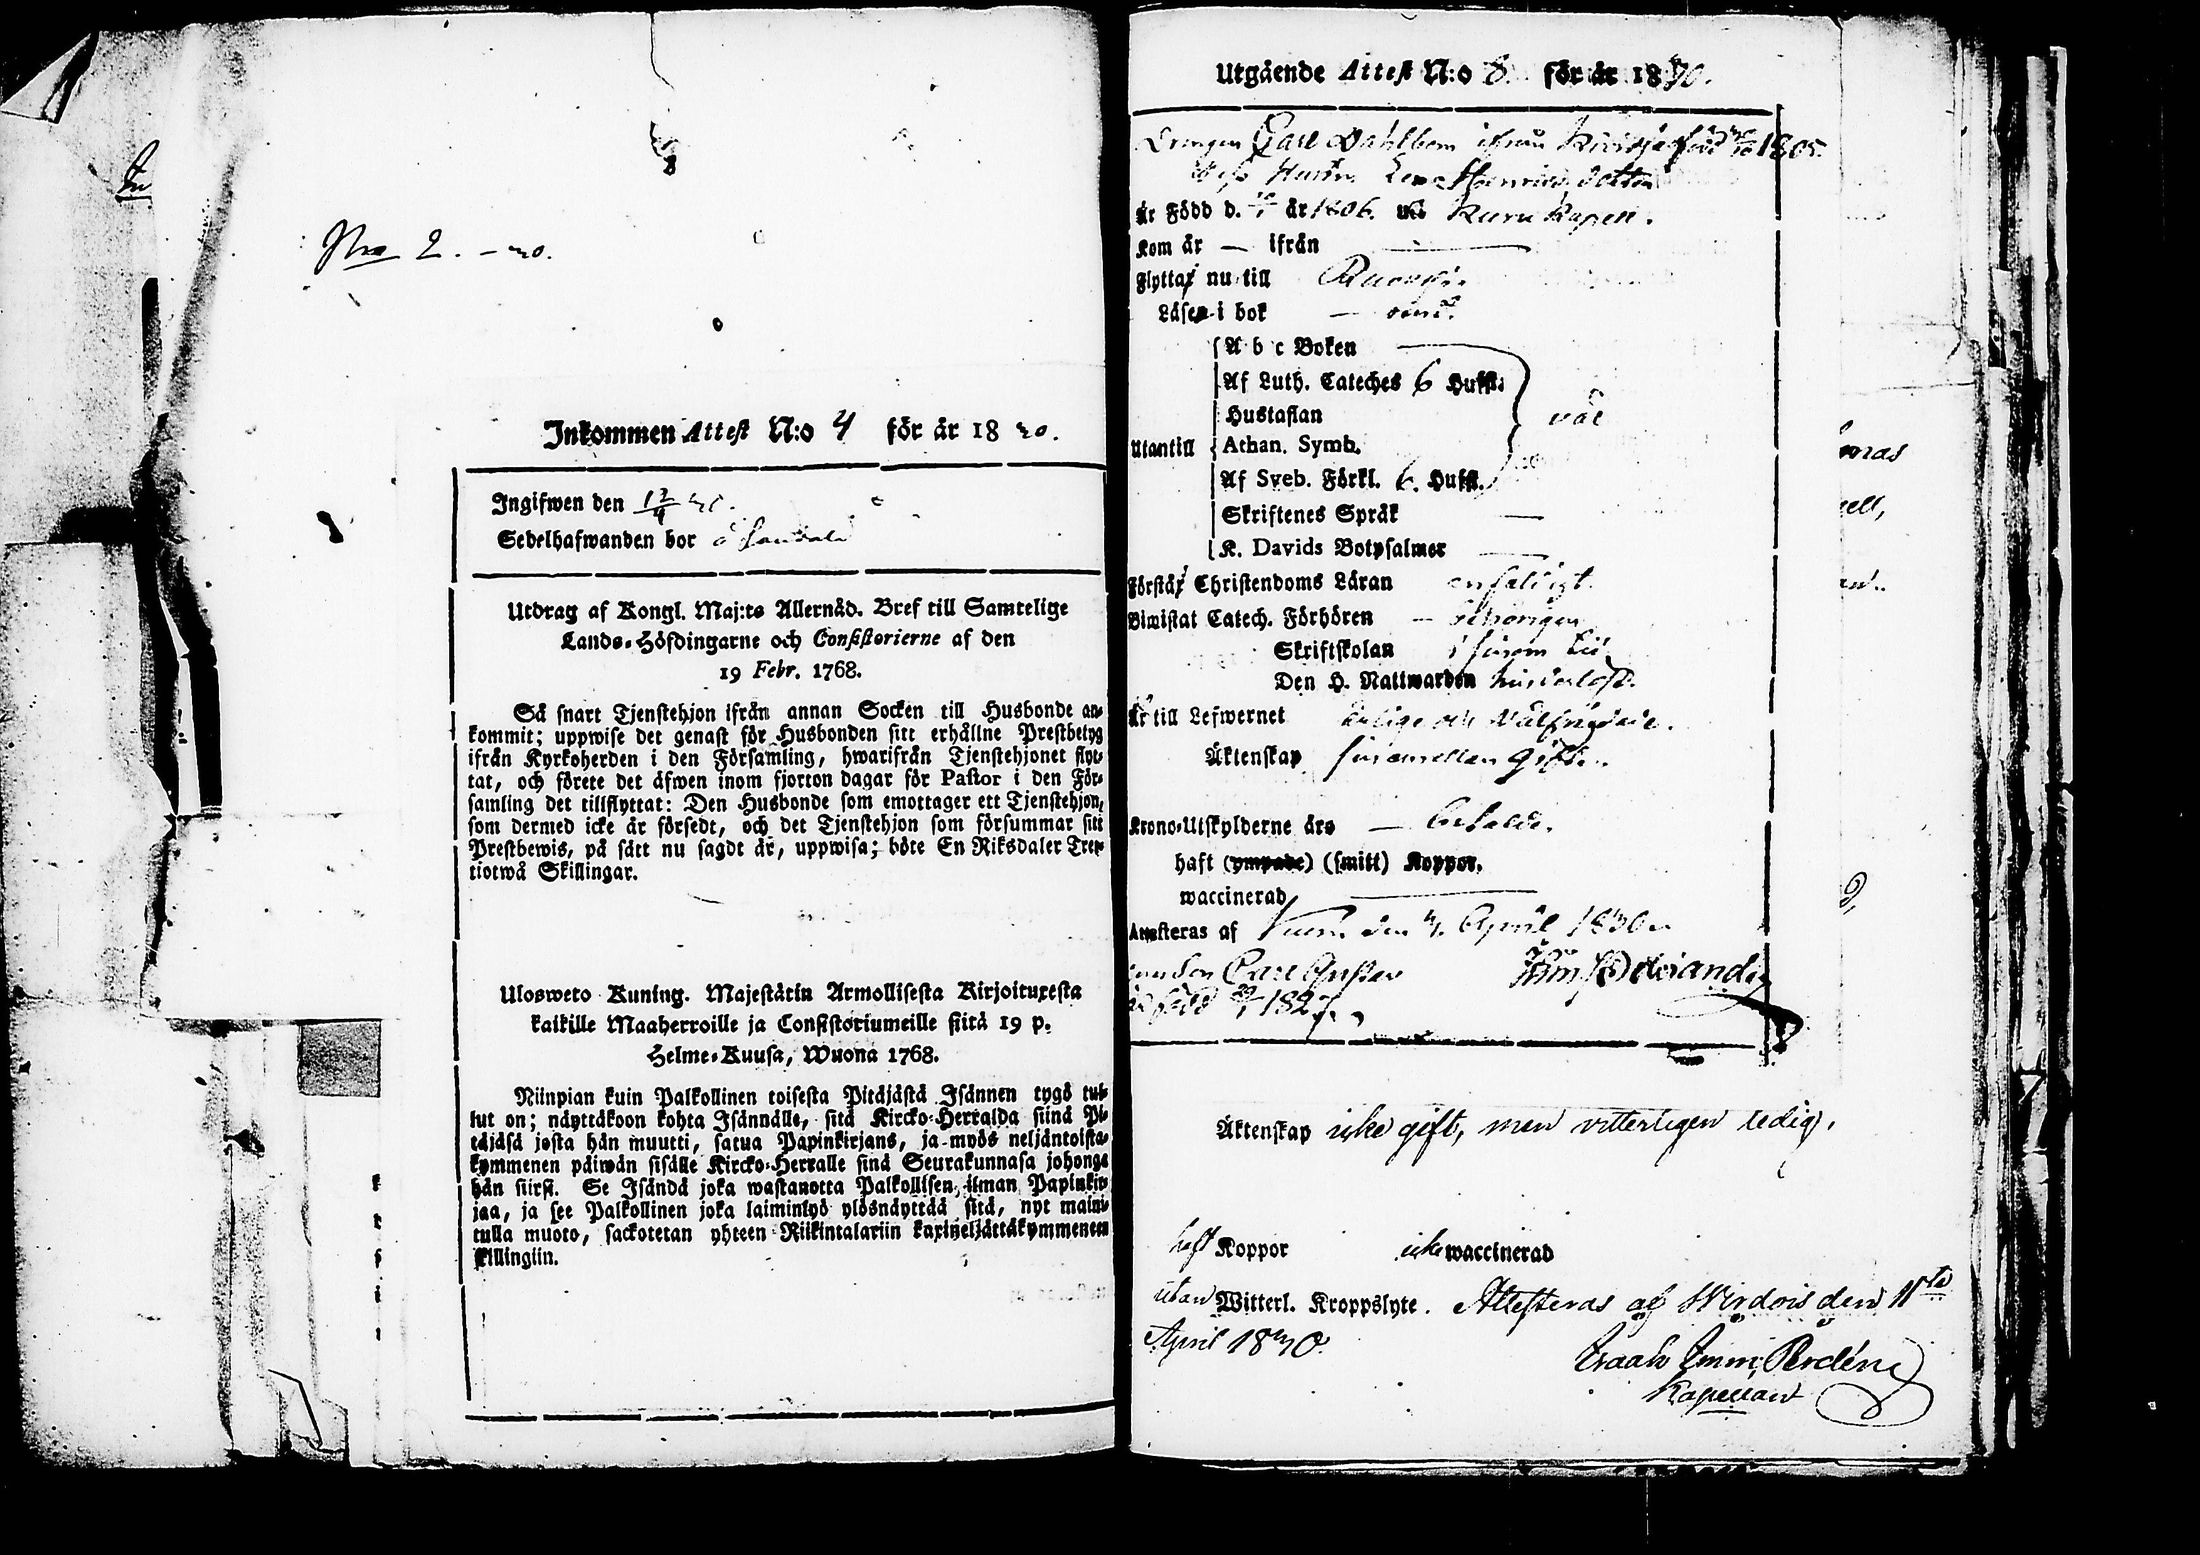 Nro 2. – 30.
Inkommen Attest N:o 4 för år 18 30.
Ingifwen den 17/4 30.
Sedelhafwanden bor å
Utdrag af Kongl. Maj:ts Allernåd. Bref till Samtelige
Lands-Höfdingarne och Consistorierne af den
19 Febr. 1768.
Så snart Tjenstehjon ifrån annan Socken till Husbonde an-
kommit; uppwise det genast för Husbonden sitt erhållne Prestbetyg
ifrån Kyrkoherden i den Församling, hwarifrån Tjenstehjonet flyt-
tat, och förete det äfwen inom fjorton dagar för Pastor i den För-
samling det tillflyttat: Den Husbonde som emottager ett Tjenstehjon,
som dermed icke är försedt, och det Tjenstehjon som försummar sitt
Prestbewis, på sätt nu sagdt är, uppwisa; böte En Riksdaler Tret-
tiotwå Skillingar.
Ulosweto Kuning. Majestätin Armollisesta Kirjoituxesta
kaikille Maaherroille ja Consistoriumeille siitä 19 p.
Helme-Kuusa, Wuona 1768.
Niinpian kuin Palkollinen toisesta Pitäjästä Isännen tygö tul-
lut on; näyttäkoon kohta Isännälle, sitä Kircko-Herralda siinä Pi-
täjäsä josta hän muutti, saatua Papinkirjans, ja myös neljäntoista-
kymmenen päiwän sisälle Kircko-Herralle siinä Seurakunnasa johonga
hän siirsi. Se Isändä joka wastanotta Palkollisen, ilman Papinkir-
jaa, ja see Palkollinen joka laiminlyö ylösnäyttää sitä, nyt maini-
tulla muoto, sackotetan yhteen Riikintalariin kaxineljättäkymmeneen
killingiin.
Utgående Attest N:o 8. för år 1830.
Drengen Carl Dahlbom ifrån född 1805.
Dess Hustru Lena Henriksdotter
Är Född d. år 1806. uti Kuru Kapell.
Kom år — ifrån —
Flyttar nu till Ruovesi.
Läser i bok —
A b c Boken
Af Luth. Cateches 6 Hufst.
Hustaflan väl
Utantill Athan. Symb.
Af Sveb. Förkl. 6. Hufst.
Skriftenes Språk —
K. Davids Botpsalmer —
Förstår Christendoms Läran enfaldigt.
Biwistat Catech. Förhören — behörigen
Skriftskolan
Den H. Nattwarden
Är till Lefwernet ärlige och välfrejdade.
Äktenskap sinsemellan gifte.
Krono-Utskylderne äro — betalde.
haft (ympade) (smitt) Koppor.
waccinerad —
Attesteras af Kuru den April 1830.
Sonen Carl Gustav
född 1827.
Äktenskap icke gift, men vitterligen ledig.
haft Koppor icke waccinerad
utan Witterl. Kroppslyte. Attesteras af Wirdois den 11te
April 1830.
Isaak Perdén
Kapellan
mas